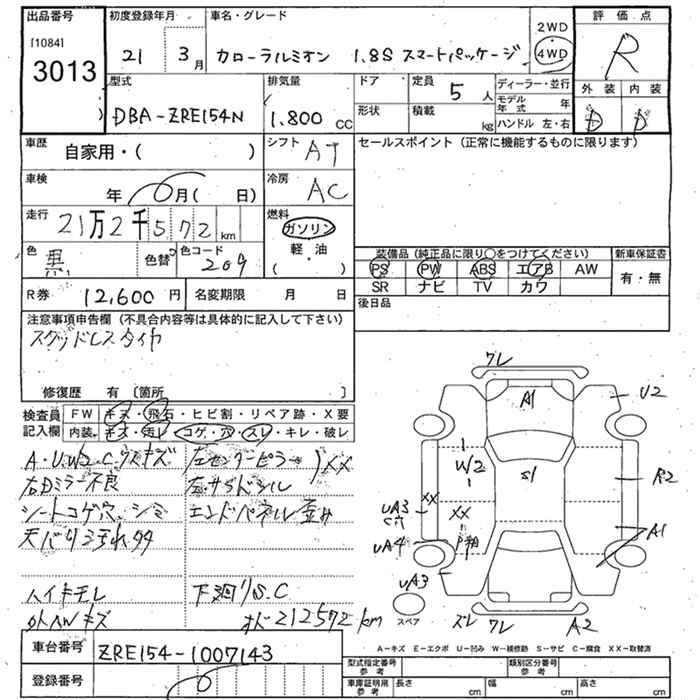 出品番号
[1084]
3013
初度登録年月
21 3月
車名・グレード
カローラルミオン 1.8S スマートパッケージ
2WD
4WD
評価点
R
外装 内装
D D
型式
DBA-ZRE154N
排気量
1.800 CC
ドア
定員
5人
形状
積載
kg
ディーラー・並行
モデル年式 年
ハンドル 左・右
車歴
自家用・( )
シフト
AT
セールスポイント (正常に機能するものに限ります)
車検
年 0月( 日)
冷房
AC
走行
21万2千572km
燃料
ガソリン
軽・油
( )
色
黒
色替
色コード
209
装備品 (純正品に限り○をつけてください)
新車保証書
PS PW ABS エアB AW
SR ナビ TV カワ
有・無
後日品
R券 12,600円
名変期限 月 日
注意事項申告欄 (不具合内容等は具体的に記入して下さい)
スタッドレスタイヤ
修復歴 有 [箇所 ]
検査員記入欄
FW キズ・飛石・ヒビ割・リペア跡・X要
内装 キズ・汚レ・コゲ・穴・スレ・キレ・破レ
A・U.W.S.C.ウスキズ
右Dミラー不良
シートコゲ穴、シミ
天バリ汚れ
左センターピラー XX
左サイドシル
エンドパネル歪み
ハイキモレ
外AWキズ
下廻りS.C
オド212572km
車台番号
ZRE154-1007143
登録番号
0
ワレ
A1
U2
W2
S1
R2
XX
XX
UA3
C穴
UA4
A1
UA3
スペア
ズレ ワレ A2
A-キズ E-エクボ U-凹み W-補修跡 S-サビ C-腐食 XX-取替済
型式指定番号
参考
類別区分番号
参考
車庫証明用
参考
長さ cm
幅 cm
高さ cm